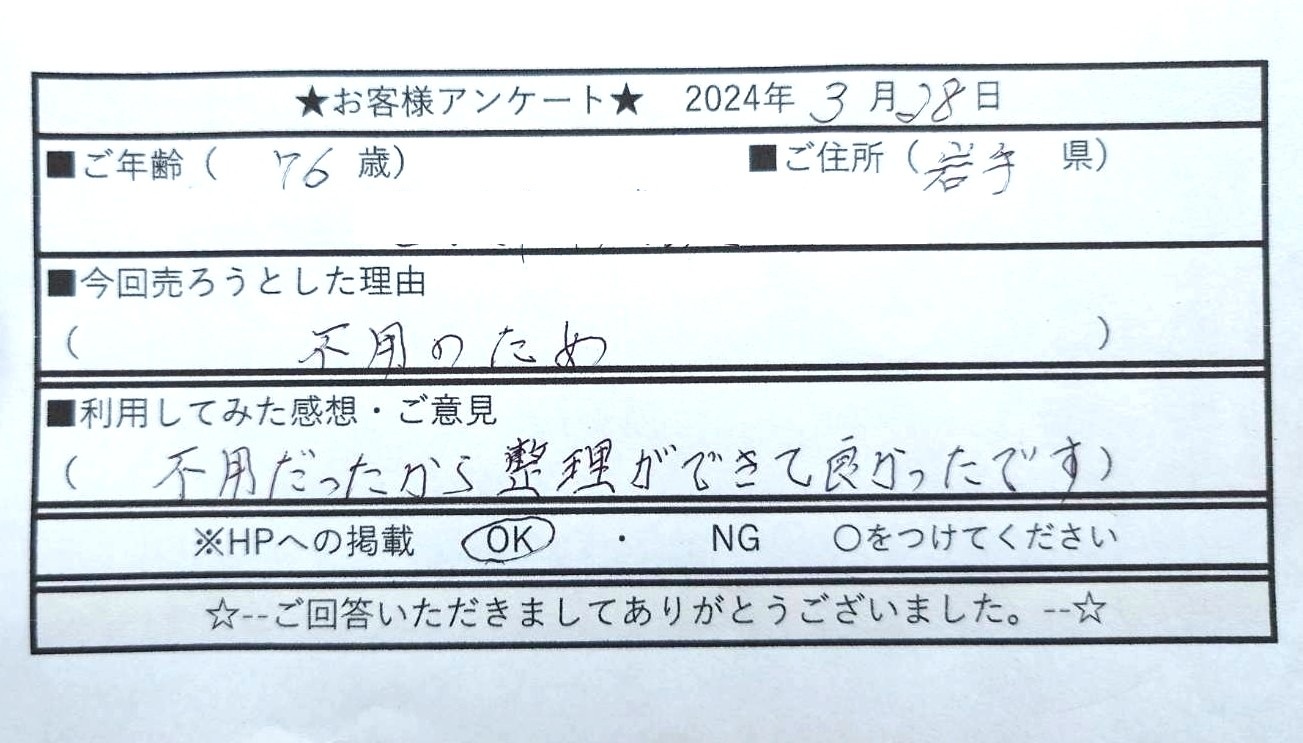 ★お客様アンケート★ 2024年 3 月28日
■ご年齢( 76 歳) ■ご住所(岩手 県)
■今回売ろうとした理由
( 不用のため )
■利用してみた感想・ご意見
( 不用だったから整理ができて良かったです)
※HPへの掲載 OK ・ NG ○をつけてください
☆--ご回答いただきましてありがとうございました。--☆